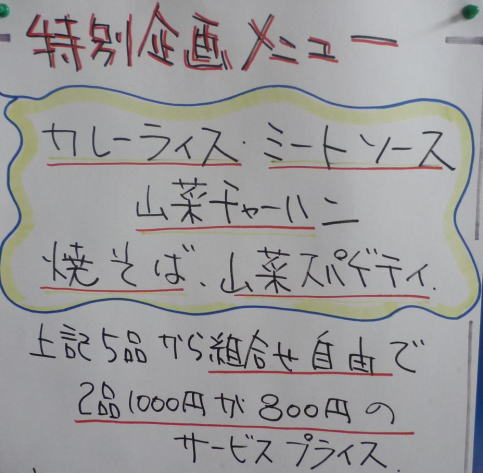 特別企画メニュー
カレーライス・ミートソース
山菜チャーハン
焼そば、山菜スパゲティ.
上記5品から組合せ自由で
2品1000円が800円の
サービスプライス.